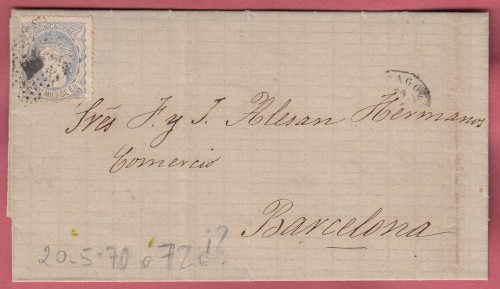 Srés F. y J. Alesan Hermanos
Comercio
Barcelona
20-5-70 ó 72